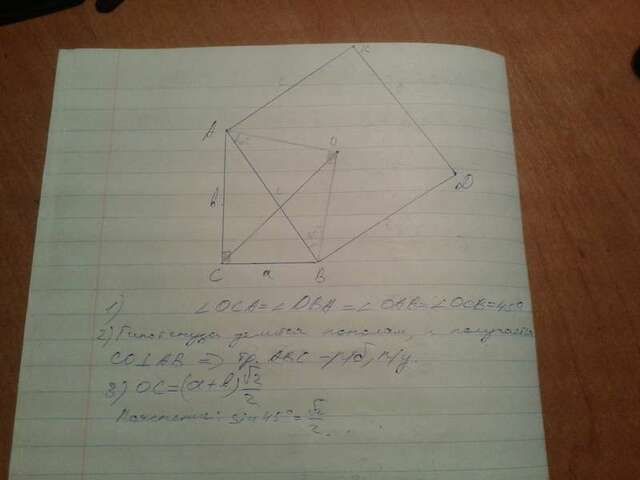 K
A
O
D
C
a
B
1) ∠OCA=∠OBA=∠OAB=∠OCB=45°
2) Гипотенуза делится пополам, и получается
CO⊥AB => тр. ABC - р/б, п/у.
3) OC=(a+b)√2/2
sin 45°=√2/2